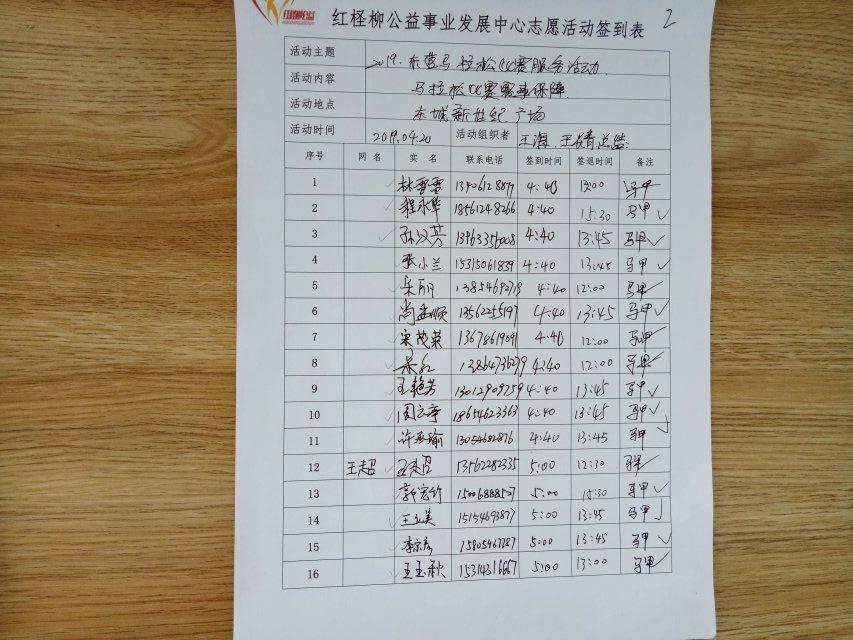 红柽柳公益
红柽柳公益事业发展中心志愿活动签到表 2
活动主题 2019.东营马拉松比赛服务活动.
活动内容 马拉松比赛赛事保障.
活动地点 东城新世纪广场
活动时间 2019.04.20 活动组织者 王海.
序号 网名 实名 联系电话 签到时间 签退时间 备注
1 林雪雪 4:40 13:00 马甲
2 程永华 18561248266 4:40 15:30 马甲 ✓
3 孙汉芳 13963356008 4:40 13:45 马甲 ✓
4 张小兰 15315061839 4:40 13:45 马甲 ✓
5 朱丽 4:40 12:00 马甲
6 尚孟顺 13562255197 4:40 13:45 马甲 ✓
7 宋茂荣 4:40 12:00 马甲
8 4:40 12:00 马甲
9 王艳芳 13012909259 4:40 13:45 马甲 ✓
10 周云亭 18654623363 4:40 13:45 马甲 ✓
11 许亚瑜 13054682876 4:40 13:45 马甲 ✓
12 王超 王超 13562282335 5:00 12:30 马甲
13 郭宏竹 5:00 15:30 马甲 ✓
14 王立美 15154693877 5:00 13:45 马甲 ✓
15 李宗彦 15805467787 5:00 13:45 马甲 ✓
16 王玉秋 15314316667 5:00 13:00 马甲 ✓